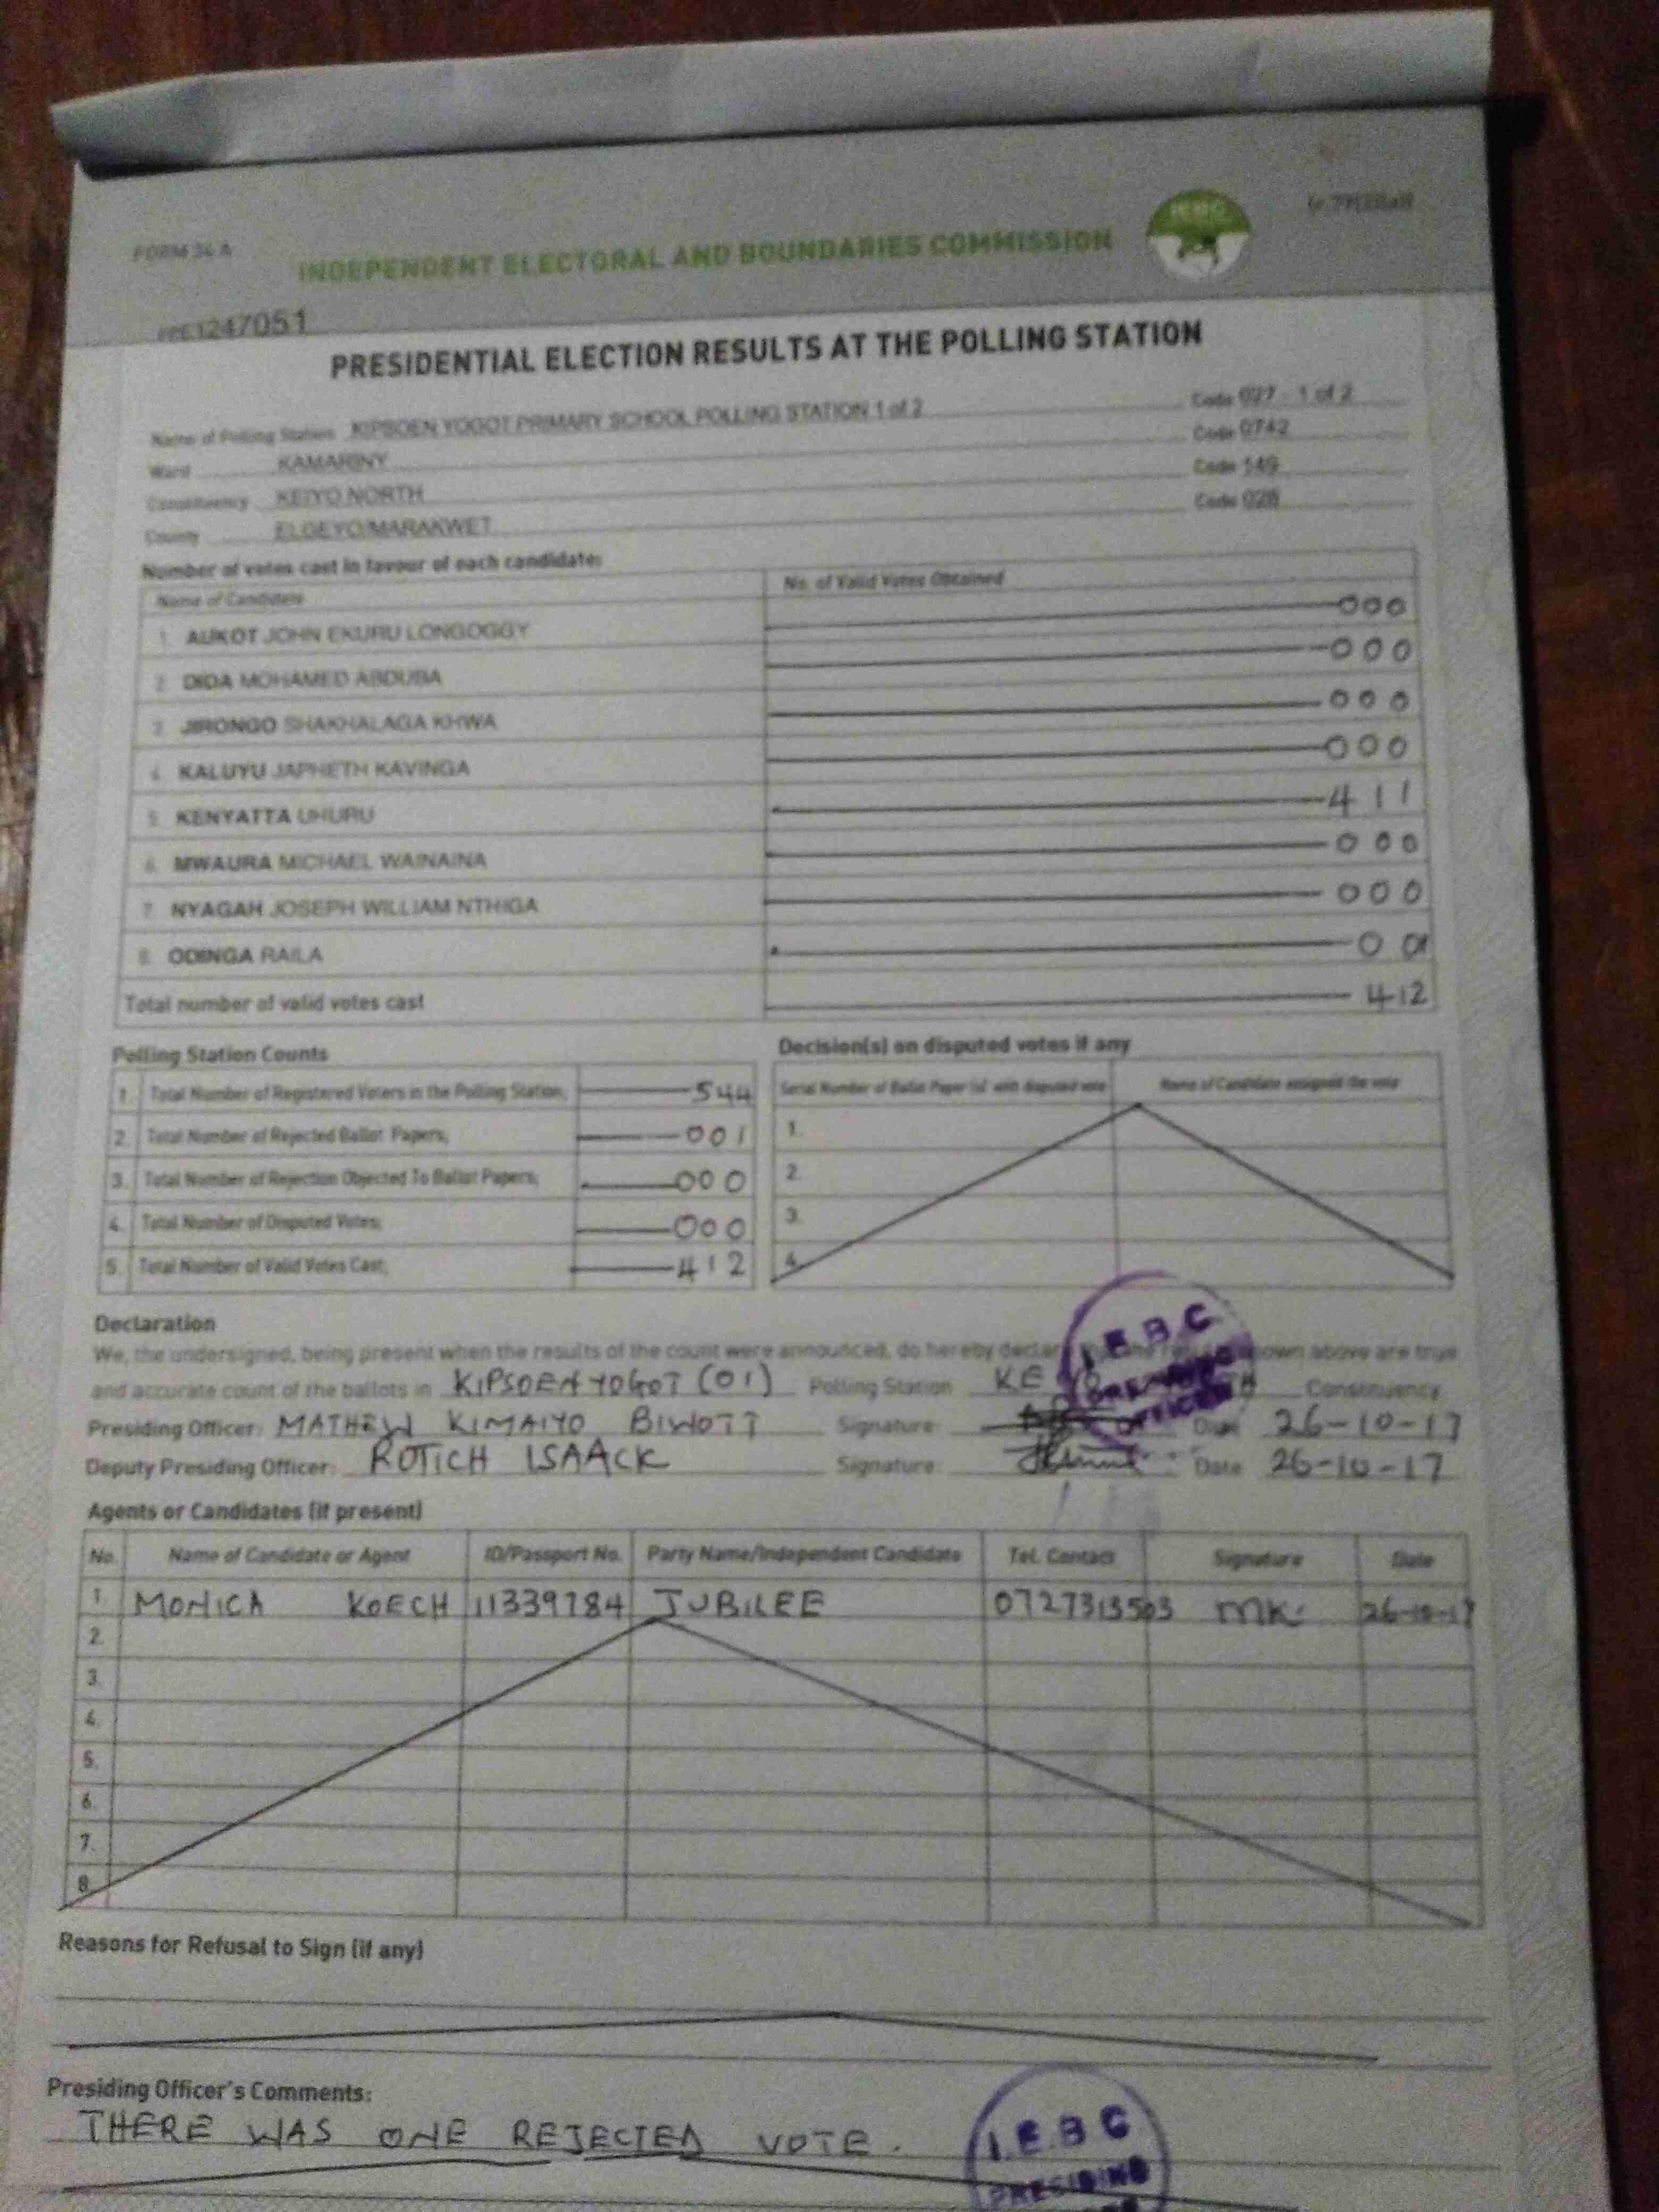 FORM 34 A
INDEPENDENT ELECTORAL AND BOUNDARIES COMMISSION
IEBC
1247051
PRESIDENTIAL ELECTION RESULTS AT THE POLLING STATION
Name of Polling Station KIPSOEN YOGOT PRIMARY SCHOOL POLLING STATION 1 of 2 Code 027 - 1 of 2
Ward KAMARINY Code 0742
Constituency KEIYO NORTH Code 149
County ELGEYO/MARAKWET Code 028
Number of votes cast in favour of each candidate:
Name of Candidate No. of Valid Votes Obtained
1. AUKOT JOHN EKURU LONGOGGY 000
2. DIDA MOHAMED ABDUBA 000
3. JIRONGO SHAKHALAGA KHWA 000
4. KALUYU JAPHETH KAVINGA 000
5. KENYATTA UHURU 411
6. MWAURA MICHAEL WAINAINA 000
7. NYAGAH JOSEPH WILLIAM NTHIGA 000
8. ODINGA RAILA 001
Total number of valid votes cast 412
Polling Station Counts
1. Total Number of Registered Voters in the Polling Station; 544
2. Total Number of Rejected Ballot Papers; 001
3. Total Number of Rejection Objected To Ballot Papers; 000
4. Total Number of Disputed Votes; 000
5. Total Number of Valid Votes Cast; 412
Decision(s) on disputed votes if any
Serial Number of Ballot Paper (s) with disputed vote Name of Candidate assigned the vote
1.
2.
3.
4.
Declaration
We, the undersigned, being present when the results of the count were announced, do hereby declare shown above are true
and accurate count of the ballots in KIPSOEN YOGOT (01) Polling Station Constituency
Presiding Officer: MATHEW KIMAIYO BIWOTT Signature: Date 26-10-17
Deputy Presiding Officer: ROTICH ISAACK Signature: Date 26-10-17
I.E.B.C
OFFICER
Agents or Candidates (if present)
No. Name of Candidate or Agent ID/Passport No. Party Name/Independent Candidate Tel. Contact Signature Date
1 MONICA KOECH 11339784 JUBILEE 0727313503 MK 26-10-17
2.
3.
4.
5.
6.
7.
8.
Reasons for Refusal to Sign (if any)
Presiding Officer's Comments:
THERE WAS ONE REJECTED VOTE.
I.E.B.C
PRESIDING